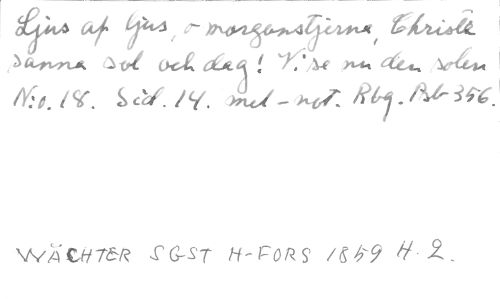 Ljus af ljus, o morgonstjerna, Christe
sanna sol och dag! Vi se nu den solen
N:o. 18. Sid. 14. mel-not. Rbg. Psb 356.
WÄCHTER SGST H-FORS 1859 H. 2.